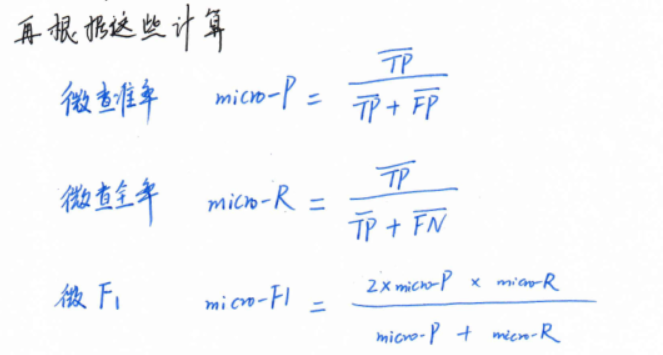 再根据这些计算
微查准率 micro-P = \frac{\overline{TP}}{\overline{TP} + \overline{FP}}
微查全率 micro-R = \frac{\overline{TP}}{\overline{TP} + \overline{FN}}
微 F₁ micro-F1 = \frac{2 × micro-P × micro-R}{micro-P + micro-R}